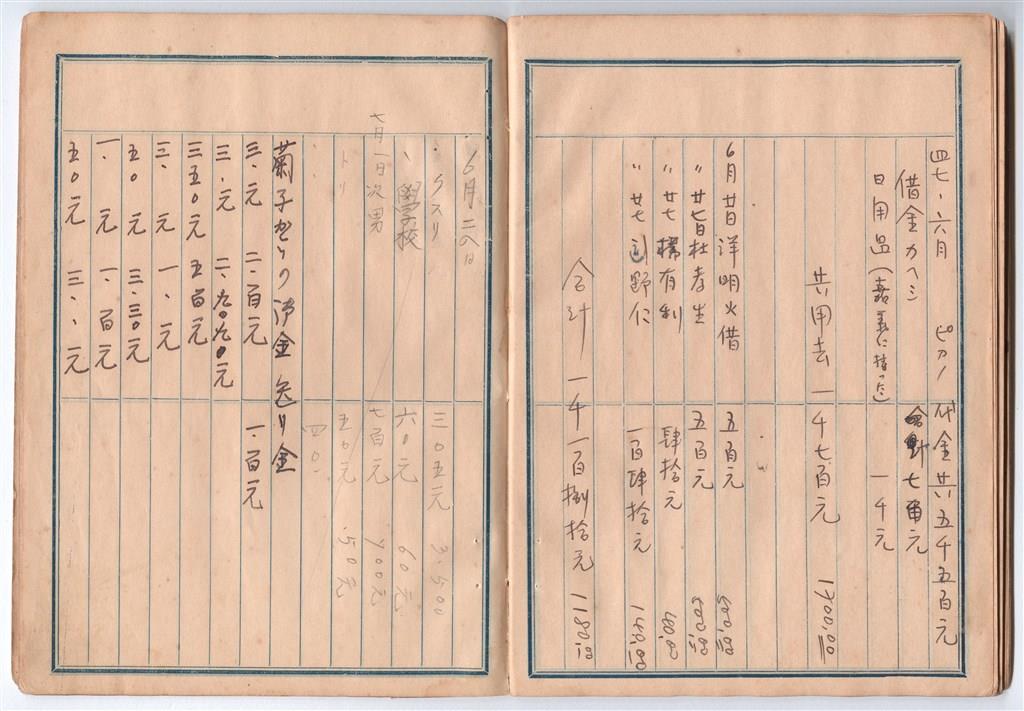 四七、六月 ピアノ代金共五千五百元
借金カヘシ 七百元
日用品(嘉義に持った) 一千元
共用去 一千七百元 1700.00
6月廿日洋明火借 五百元 500.00
〃 廿七日杜孝生 五百元 500.00
〃 廿七 楊有利 肆拾元 40.00
〃 廿七 野仁 一百肆拾元 140.00
合計 一千一百捌拾元 1180.00
6月二八日
、クスリ 三〇五元 3.500
、學校 六〇元 60元
七月一日次男 七百元 700元
トリ 五〇元 50元
四〇、
菊子からの 金 送り金
三、元 二、百元 一、百元
三、元 二、九〇九〇元
三五〇元 五百元
三、元 一、元
五〇元 三、三〇元
一、元 一、百元
五〇元 三、、元